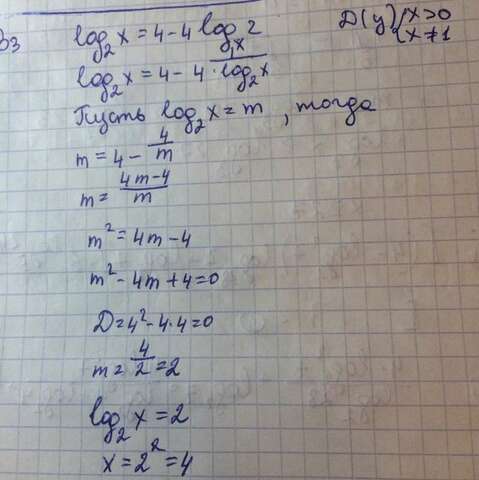 В3
log₂x = 4 - 4 logₓ2    D(y) { x > 0
{ x ≠ 1
log₂x = 4 - 4 · 1/log₂x
Пусть log₂x = m, тогда
m = 4 - 4/m
m = (4m-4)/m
m² = 4m - 4
m² - 4m + 4 = 0
D = 4² - 4·4 = 0
m = 4/2 = 2
log₂x = 2
x = 2² = 4